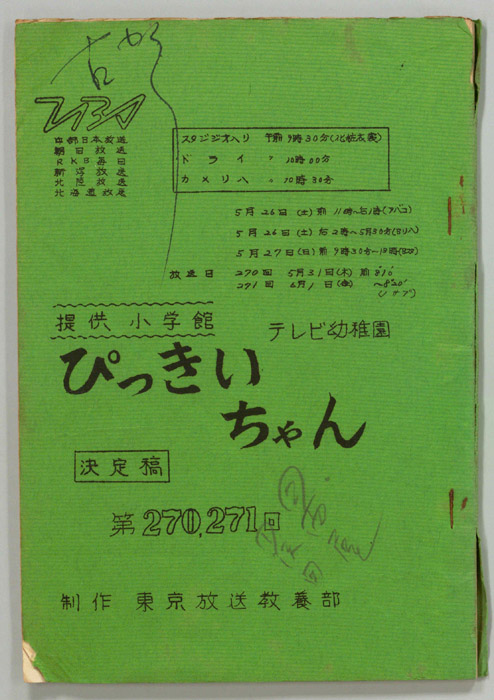 TBS
中部日本放送
朝日放送
RKB毎日
新潟放送
北陸放送
北海道放送
スタジオ入り 午前9時30分(化粧衣裳)
ドライ 〃 10時00分
カメリハ 〃 10時30分
5月26日(土)前11時〜后1時(アバコ)
5月26日(土)后2時〜5月30分(Bリハ)
5月27日(日)前9時30分〜
放送日 270回 5月31日(木)前8'10'
271回 6月1日(金) 〜8'20'
提供 小学館
テレビ幼稚園
ぴっきい
ちゃん
決定稿
第270,271回
制作 東京放送教養部